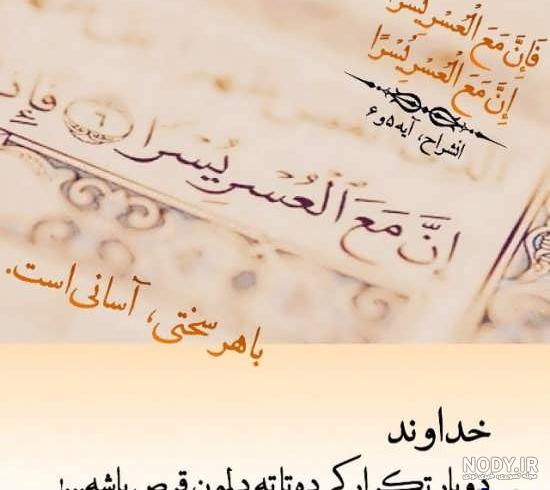 فَإِنَّ مَعَ الْعُسْرِ يُسْرًا
إِنَّ مَعَ الْعُسْرِ يُسْرًا
انشراح، آیه ۵و۶
إِنَّ مَعَ الْعُسْرِ يُسْرًا ٦ فَإِنَّ
با هر سختی، آسانی است.
خداوند
دوبار تکرار کرده تا ته دلمون قرص باشه...!
NODY.IR